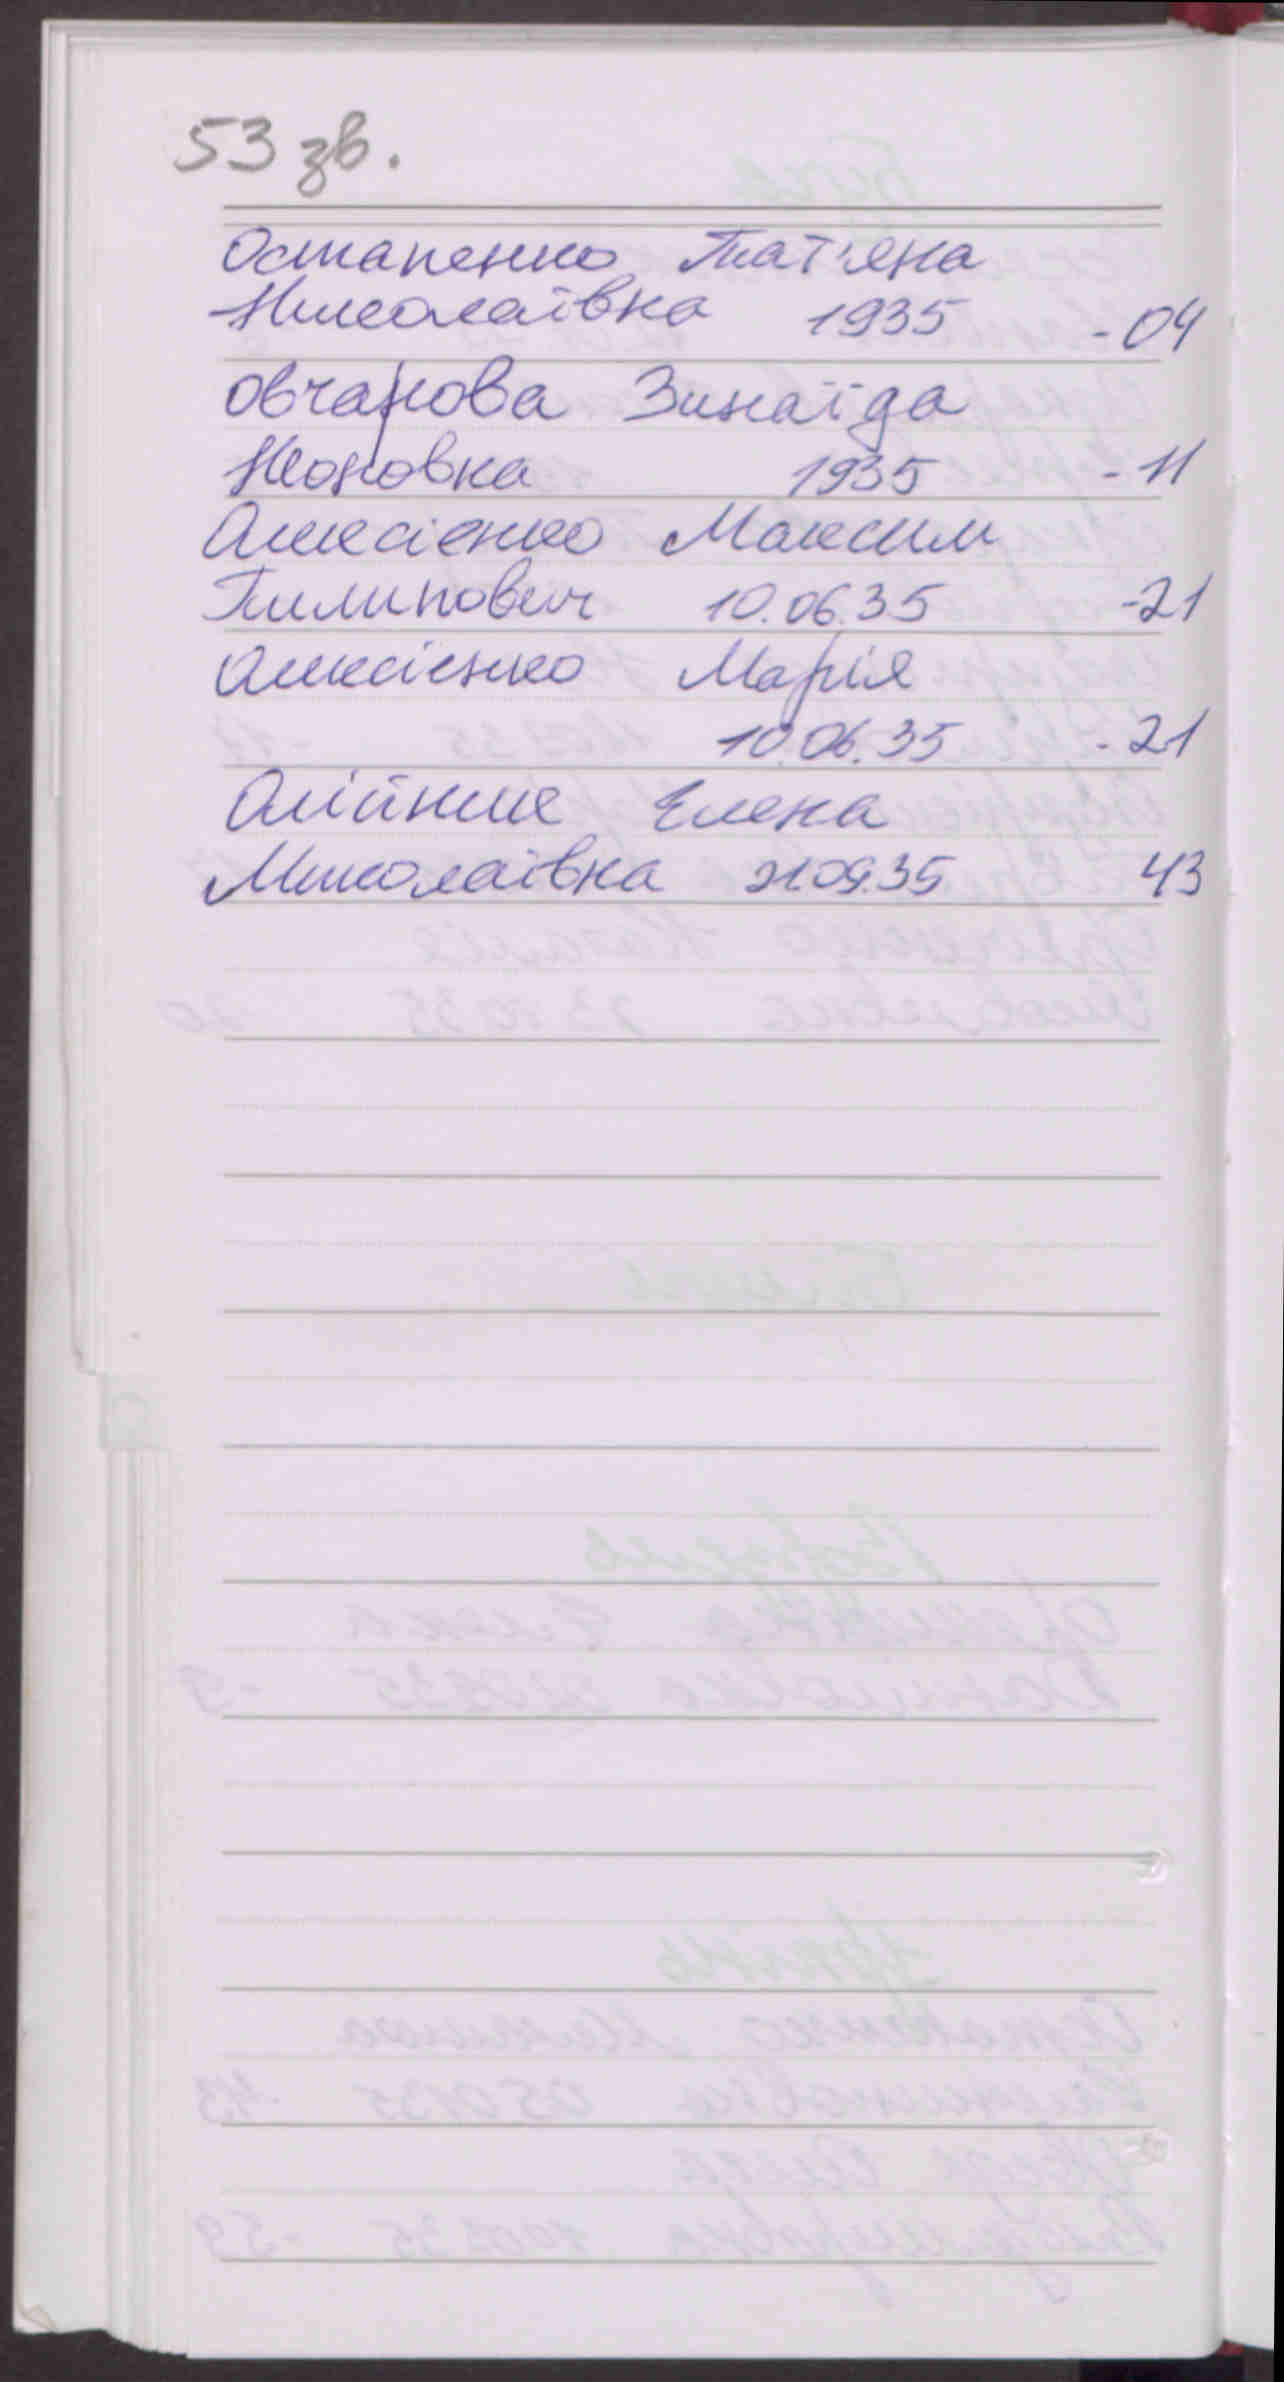 53 зв.
Остапенко Тат'яна
Николаївна 1935 - 04
Овчарова Зинаїда
1935 - 11
Алексієнко Максим
Пилипович 10.06.35 -21
Алексієнко Марія
10.06.35 - 21
Олійник Елена
Миколаївна 21.09.35 43